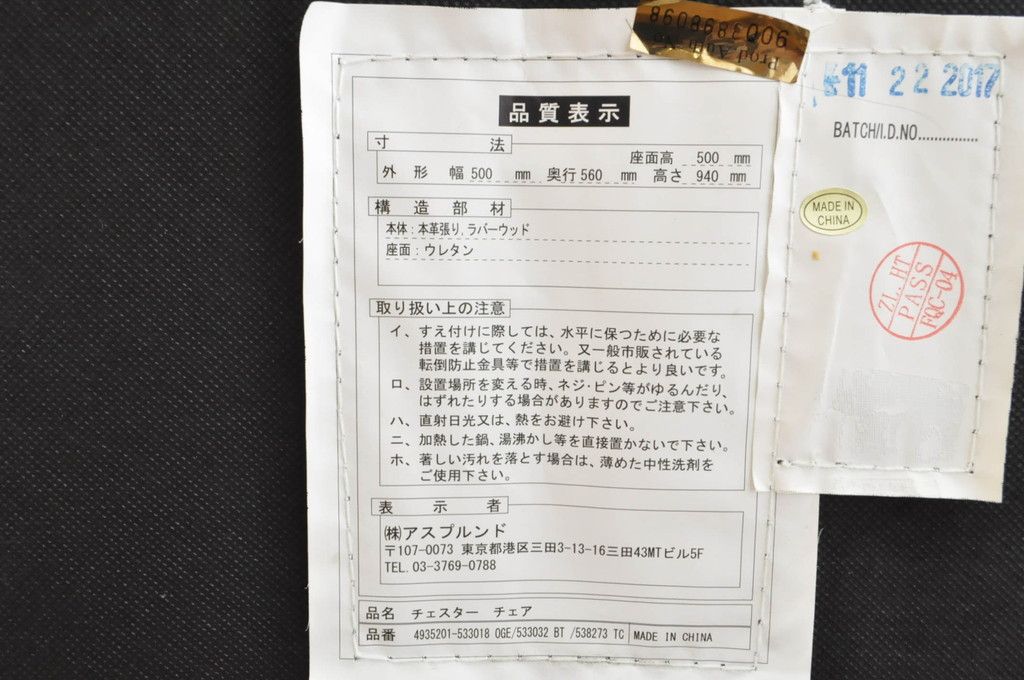 860868E006
品質表示
寸法
座面高 500 mm
外形 幅 500 mm 奥行 560 mm 高さ 940 mm
構造部材
本体:本革張り,ラバーウッド
座面:ウレタン
取り扱い上の注意
イ、すえ付けに際しては、水平に保つために必要な
措置を講じてください。又一般市販されている
転倒防止金具等で措置を講じるとより良いです。
ロ、設置場所を変える時、ネジ・ピン等がゆるんだり、
はずれたりする場合がありますのでご注意下さい。
ハ、直射日光又は、熱をお避け下さい。
ニ、加熱した鍋、湯沸かし等を直接置かないで下さい。
ホ、著しい汚れを落とす場合は、薄めた中性洗剤を
ご使用下さい。
表示者
㈱アスプルンド
〒107-0073 東京都港区三田3-13-16三田43MTビル5F
TEL. 03-3769-0788
品名 チェスター チェア
品番 4935201-533018 OGE/533032 BT /538273 TC MADE IN CHINA
11 22 2017
BATCH/I.D.NO..............
MADE IN
CHINA
ZL. HT
PASS
FQC-04